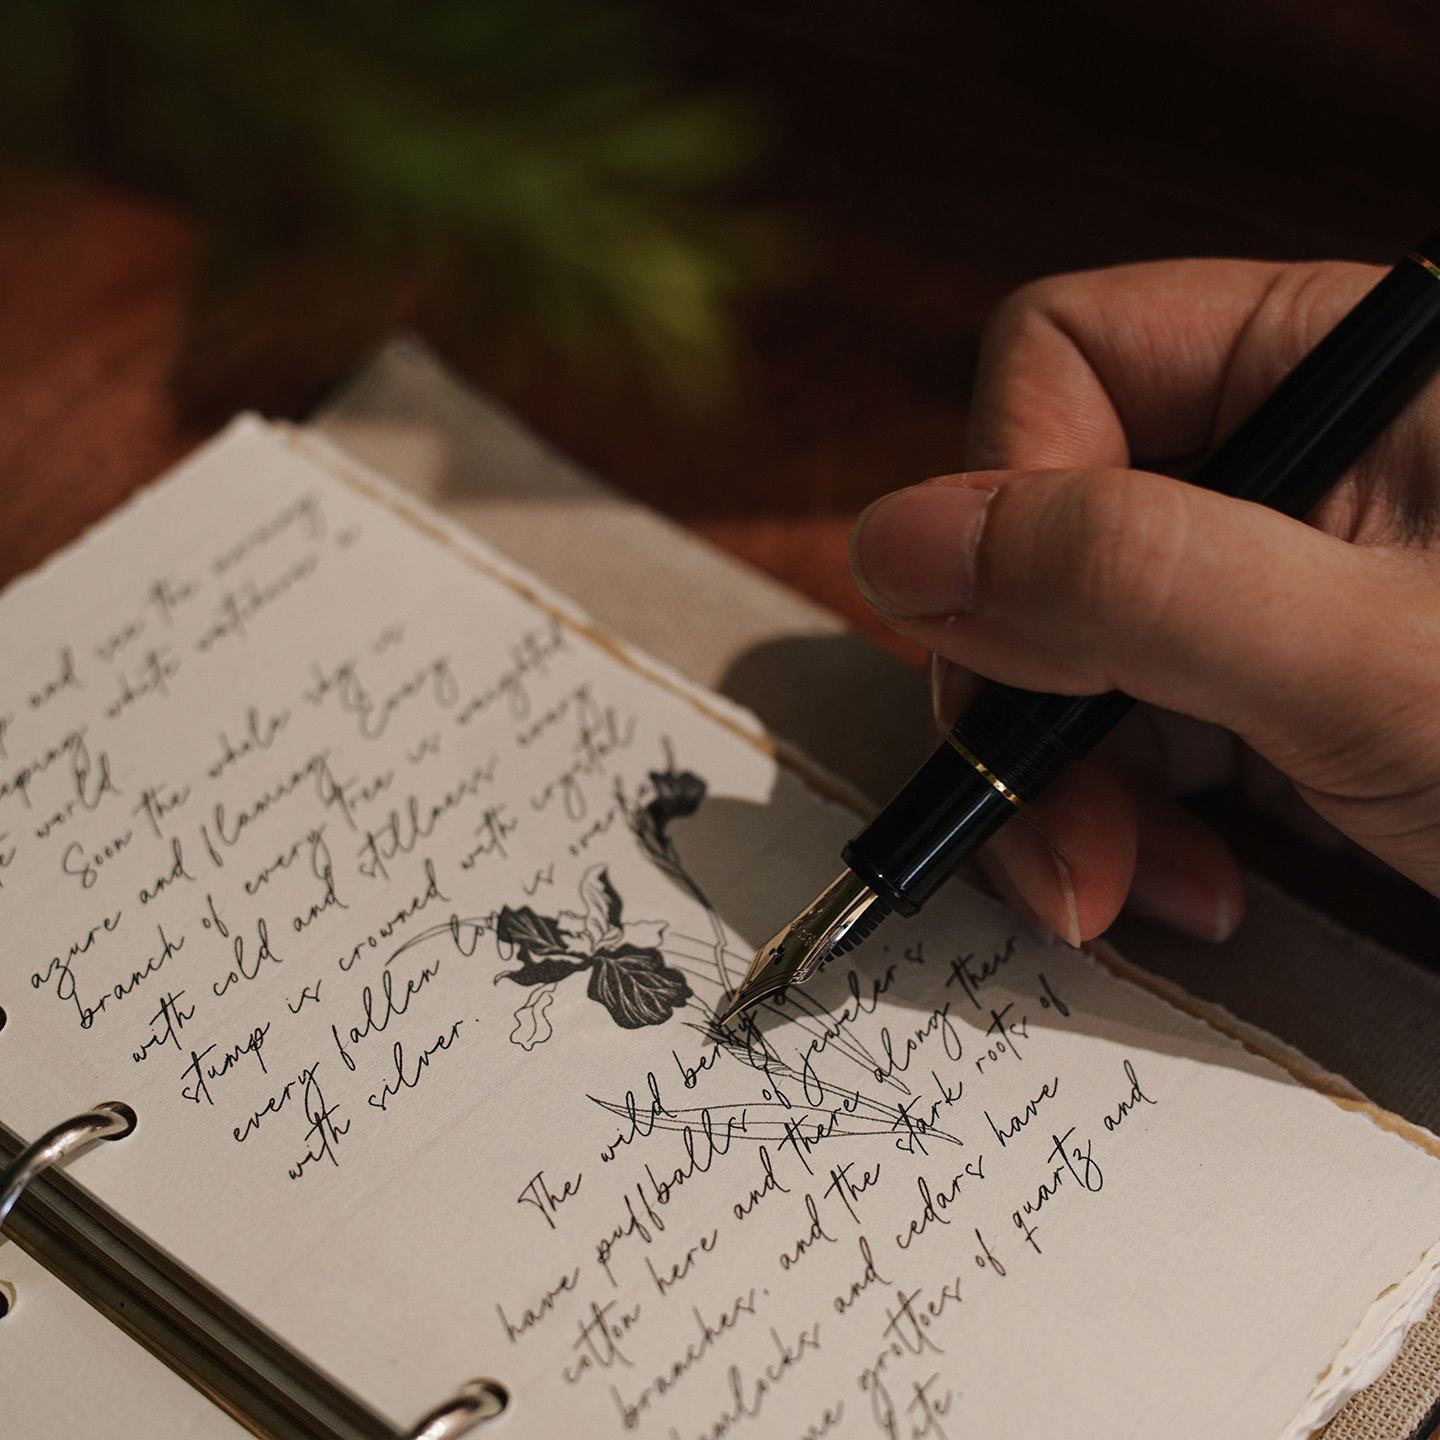 and see the morning
white watchman
world.
Soon the whole sky is
azure and flaming. Every
branch of every tree is weighted
with cold and stillness every
stump is crowned with crystal
every fallen log is overlaid
with silver.
The wild berry
have puffballs of jeweler's
cotton here and there along their
branches, and the stark roots of
and cedars have
grottoes of quartz and